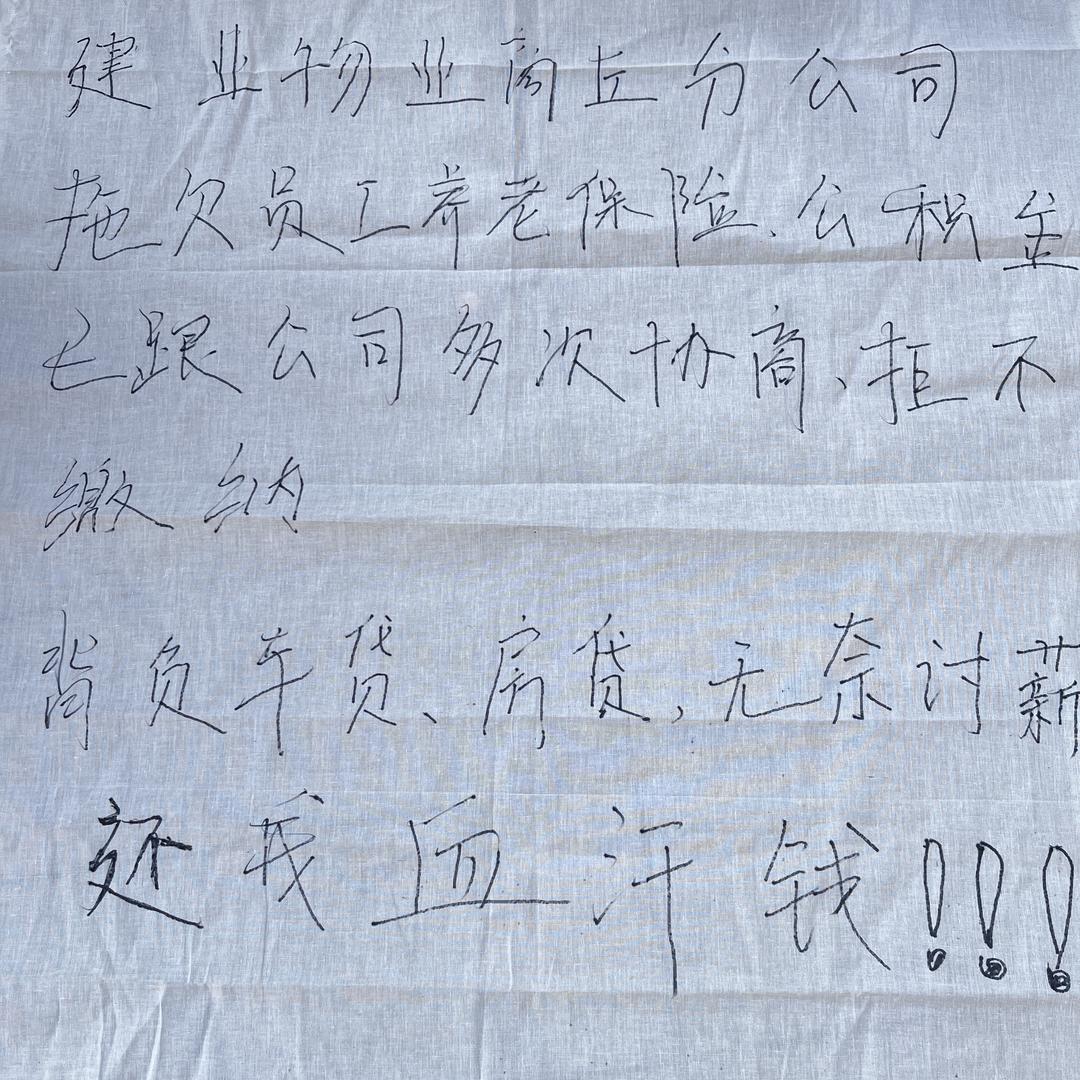 建业物业商丘分公司
拖欠员工养老保险、公积金
已跟公司多次协商、拒不
缴纳
背负车贷、房贷，无奈讨薪
还我血汗钱!!!